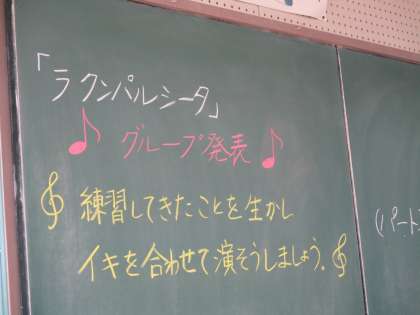 「ラクンパルシータ」
♪ グループ発表 ♪
練習してきたことを生かし
イキを合わせて演そうしましょう。
(パート